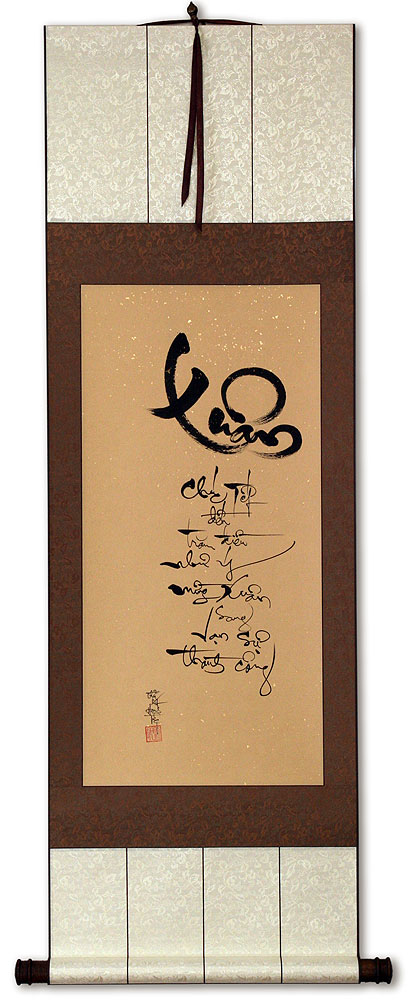 Xuân
Chúc Tết
đến
trăm điều
như ý
mừng Xuân
sang
vạn sự
thành công